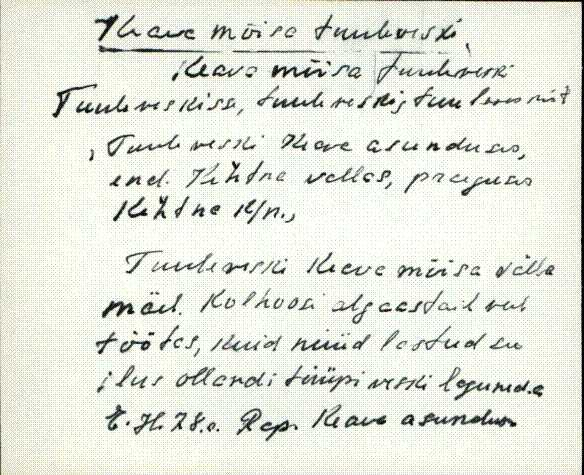 Keava mõisa tuuleveski,
Keava mõisa tuuleveski
Tuuleveskisse, tuuleveskis, tuuleveskit
, Tuuleveski Keava asunduses,
end. Kehtna vallas, praeguses
Kehtna k/n.,
Tuuleveski Keava mõisa välja
mäel. Kolhoosi algaastail veel
töötas, kuid nüüd lastud see
ilus ollandi tüüpi veski laguneda
E. H. 28.a. Rap. Keava asundus